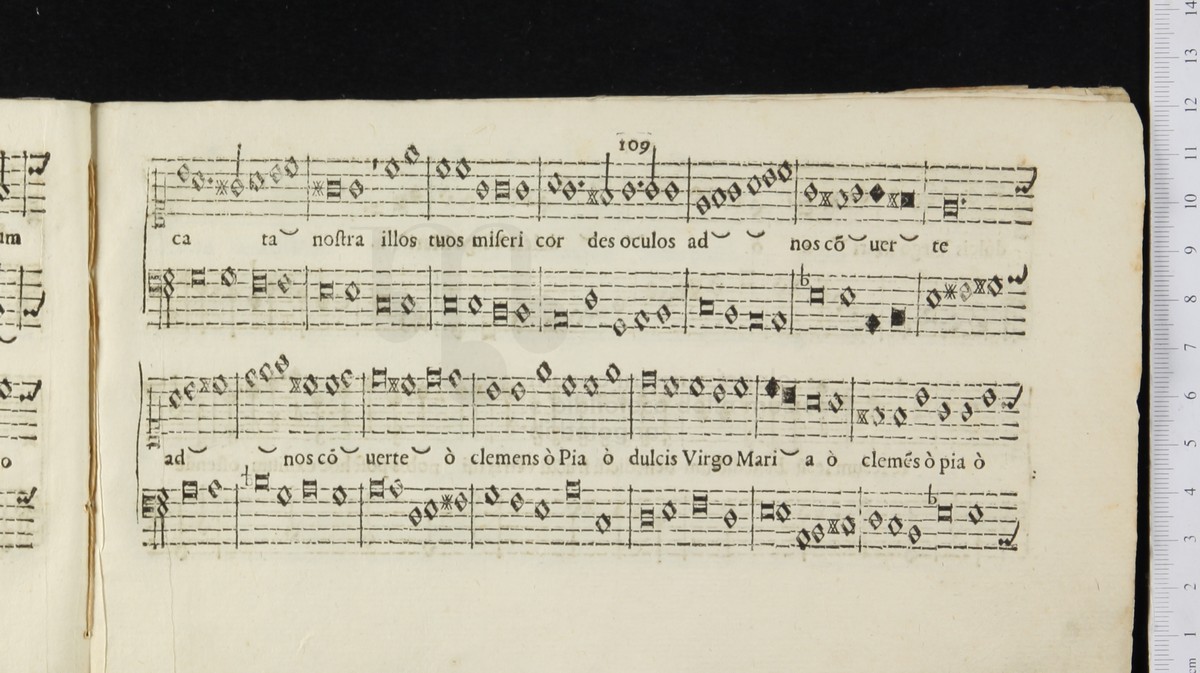 109
um
ca ta noſtra illos tuos miſeri cor des oculos ad nos cõ uer te
o
ad nos cõ uerte ò clemens ò Pia ò dulcis Virgo Mari a ò clemẽs ò pia ò
14
13
12
11
10
9
8
7
6
5
4
3
2
1
cm